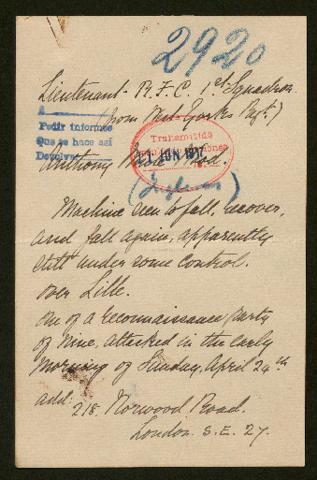 2920
Lieutenant R.F.C. 1st Squadron
(from the Yorks Regt.)
A
Pedir informes
Que se hace así
Devolver
Transmitida
11 JUN 1917
Anthony
(Inglaterra)
Machine seen to fall, recover,
and fall again, apparently
still under some control.
over Lille.
One of a reconnaissance party
of nine, attacked in the early
morning of Sunday, April 24th
add. 218. Norwood Road.
London. S.E. 27.